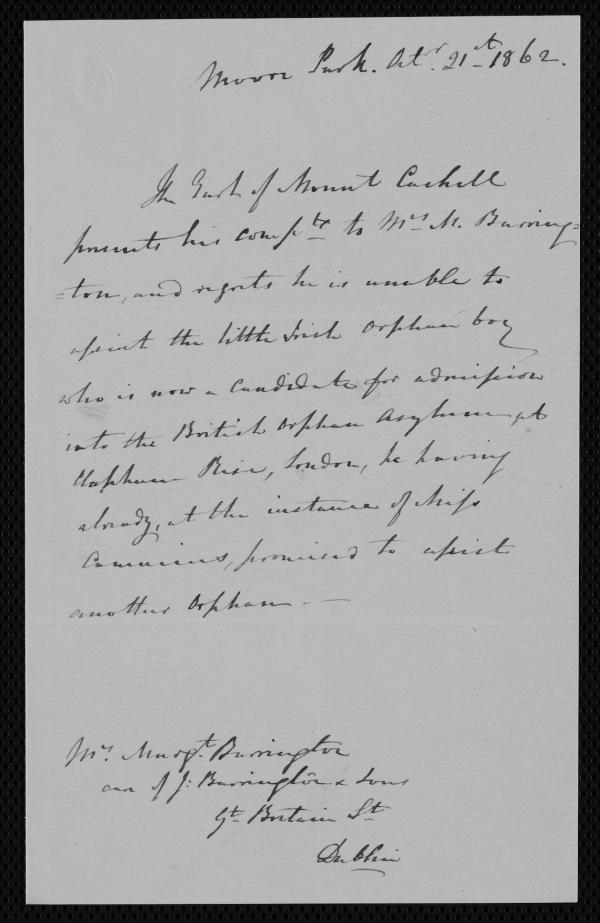 Moore Park. Octr. 21st 1862.
The Earl of Mount Cashell
presents his compts to Mrs M. Barring=
=ton, and regrets he is unable to
assist the little Irish Orphan boy
who is now a Candidate for admission
into the British Orphan Asylum, at
Clapham Rise, London, he having
already, at the instance of Miss
Cummins, promised to assist
another Orphan. —
Mrs. Margt. Barrington
care of J: Barrington & Sons
Gt. Britain St.
Dublin